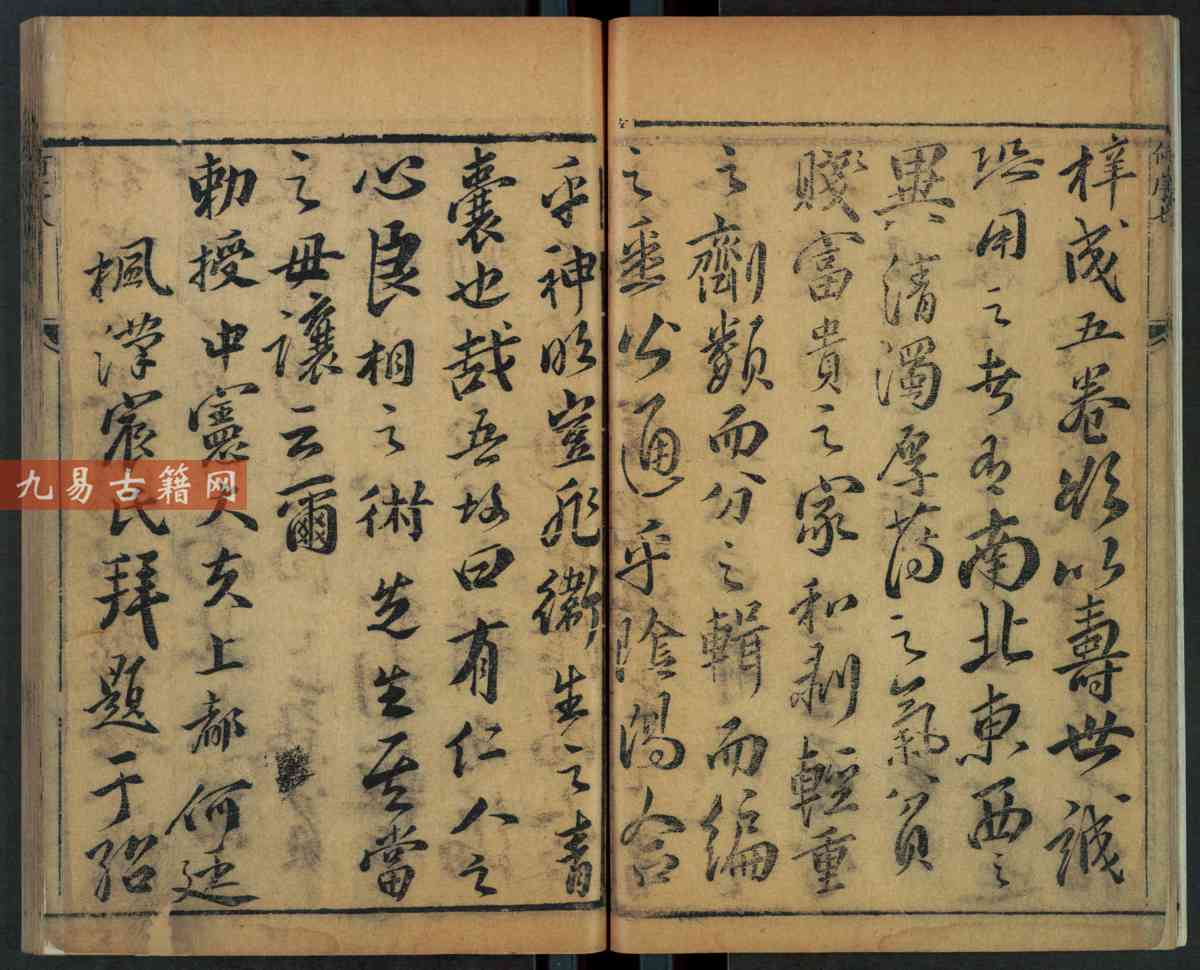 梓成五卷欲以壽世誠
恐用之者有南北東西之
異清濁厚薄之氣貧
賤富貴之家和劑輕重
之劑類而分之輯而編
之垂公通乎陰陽合
乎神明豈非衛生之青
囊也哉吾故曰有仁人之
心良相之術先生其當
之毋讓云爾
勅授中憲大夫上都何建
楓漢宸氏拜題于
九易古籍网